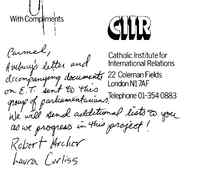 With Compliments
CIIR
Catholic Institute for
International Relations
22 Coleman Fields
London N1 7AF
Telephone 01-354 0883
Carmel,
letter and
accompanying documents
on E.T. sent to this
group of parliamentarians.
We will send additional lists to you
as we progress in this project!
Robert Archer
Laura Curliss